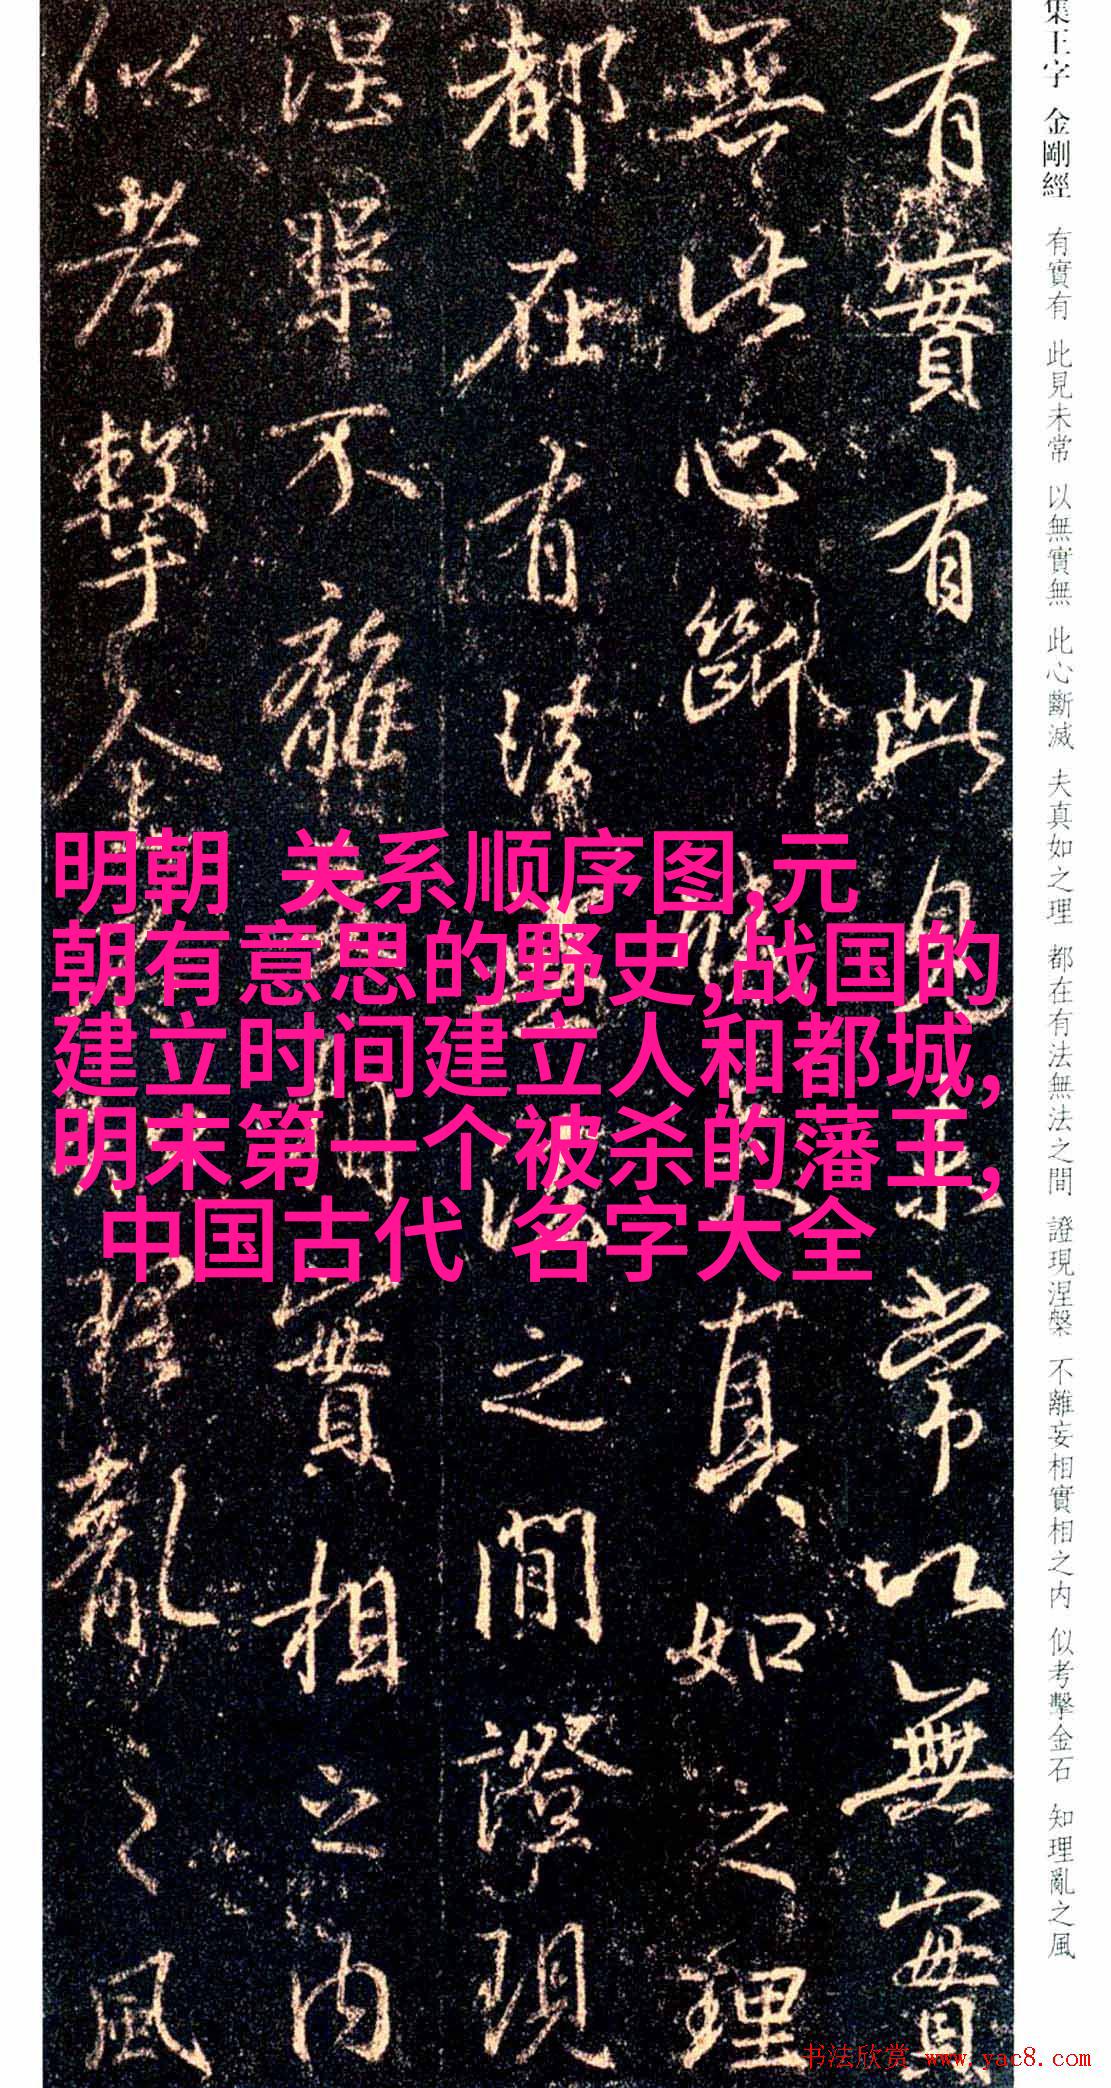 集王字 金剛經 有實有 此見未常 以無實無 此心斷滅 夫真如之理 都在有法無法之間 證現涅槃 不離妄相實相之内 似考擊金石 知理亂之風
有實有此見未常以無實
無此心斷滅夫真如之理
都在有法無法之間證現
涅槃不離妄相實相之内
似考擊金石知理亂之風
明朝 关系顺序图,元
朝有意思的野史,战国的
建立时间建立人和都城,
明末第一个被杀的藩王,
中国古代 名字大全
书法欣赏 www.yac8.com